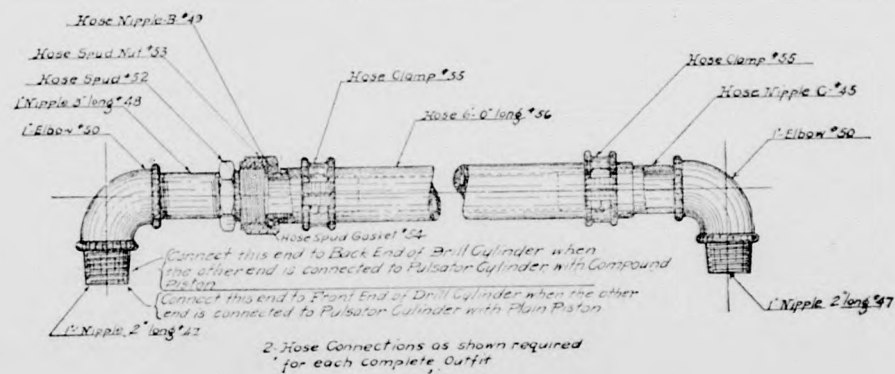 Hose Nipple-B #49
Hose Spud Nut #53
Hose Spud #52
1" Nipple 3" long #48
1" Elbow #50
Hose Clamp #55
Hose 6'-0" long #56
Hose Clamp #55
Hose Nipple C-#45
1" Elbow #50
Hose Spud Gasket #54
Connect this end to Back End of Drill Cylinder when
the other end is connected to Pulsator Cylinder, with Compound
Piston
Connect this end to Front End of Drill Cylinder when the other
end is connected to Pulsator Cylinder with Plain Piston
1" Nipple 2" long #47
1" Nipple 2" long #47
2-Hose Connections as shown required
for each complete Outfit